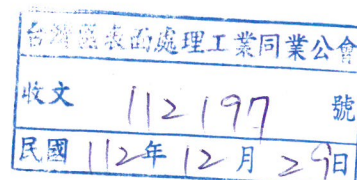 台灣區表面處理工業同業公會
收文 112197 號
民國 112年 12月 29日